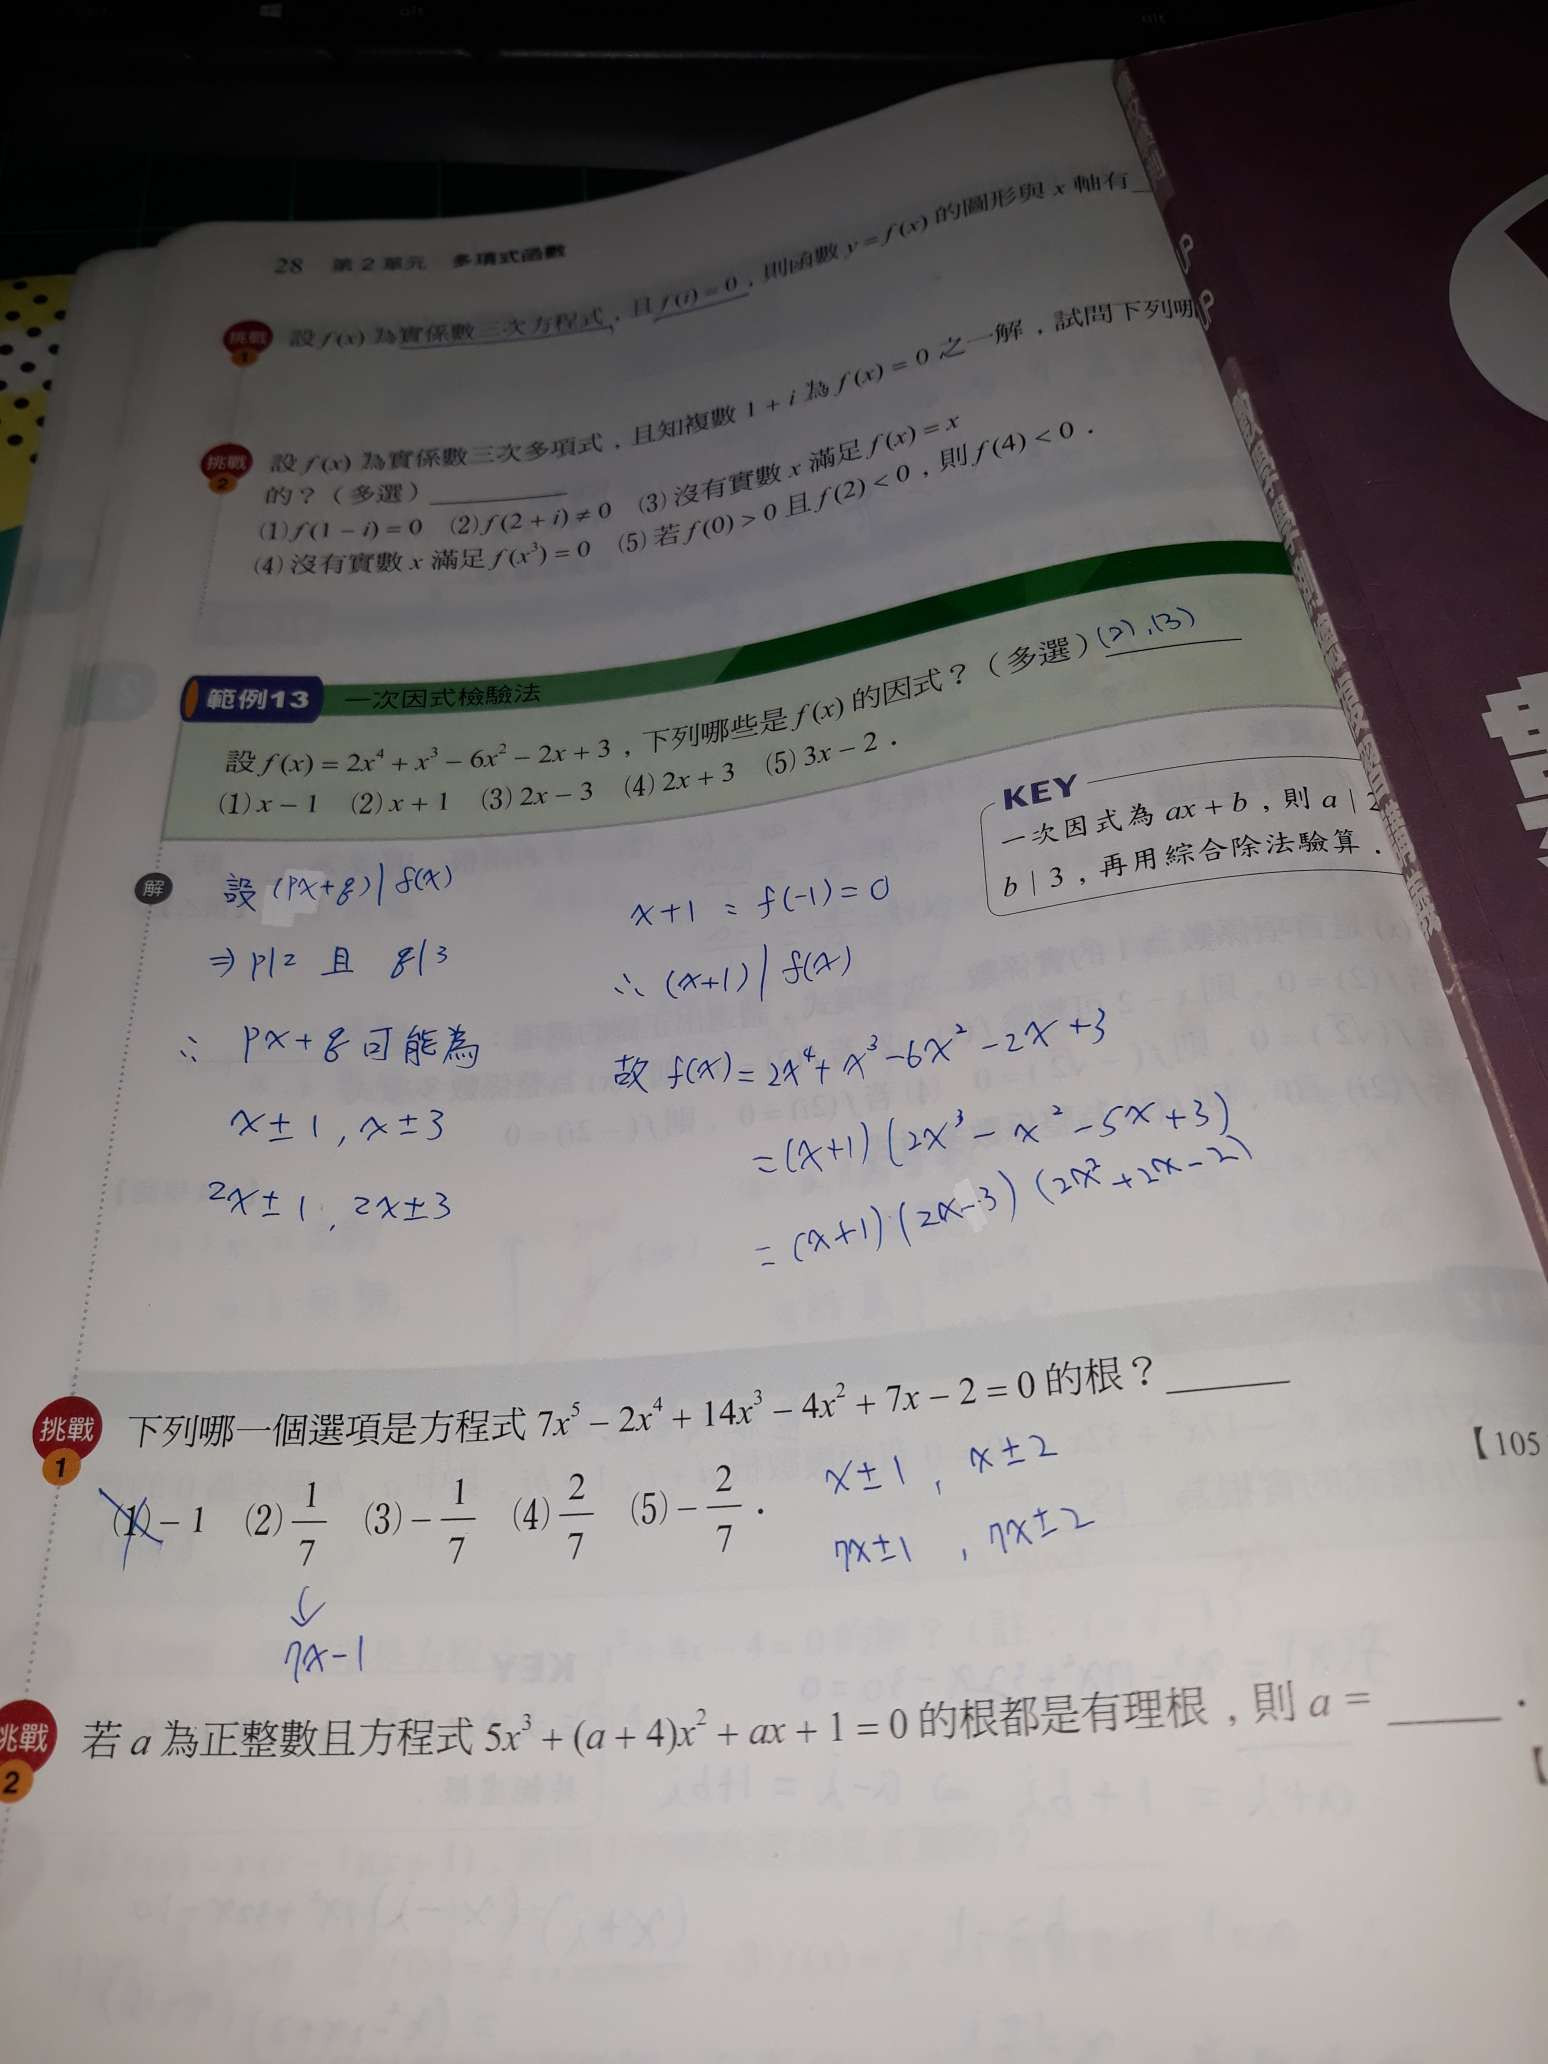 28 第2單元 多項式函數
挑戰1 設 f(x) 為實係數三次方程式，且 f(i) = 0，則函數 y = f(x) 的圖形與 x 軸有
挑戰2 設 f(x) 為實係數三次多項式，且知複數 1 + i 為 f(x) = 0 之一解，試問下列哪
的？（多選）
(1) f(1 − i) = 0 (2) f(2 + i) ≠ 0 (3) 沒有實數 x 滿足 f(x) = x
(4) 沒有實數 x 滿足 f(x³) = 0 (5) 若 f(0) > 0 且 f(2) < 0，則 f(4) < 0．
範例13 一次因式檢驗法
設 f(x) = 2x⁴ + x³ − 6x² − 2x + 3，下列哪些是 f(x) 的因式？（多選）(2),(3)
(1) x − 1 (2) x + 1 (3) 2x − 3 (4) 2x + 3 (5) 3x − 2．
KEY
一次因式為 ax + b，則 a | 2
b | 3，再用綜合除法驗算．
解
設 (px+q) | f(x)
⇒ p|2 且 q|3
∴ px+q 可能為
x±1, x±3
2x±1, 2x±3
x+1 : f(-1)=0
∴ (x+1) | f(x)
故 f(x) = 2x⁴+x³-6x²-2x+3
=(x+1)(2x³-x²-5x+3)
=(x+1)(2x-3)(2x²+2x-2)
挑戰1 下列哪一個選項是方程式 7x⁵ − 2x⁴ + 14x³ − 4x² + 7x − 2 = 0 的根？
【105
(1) − 1 (2) 1/7 (3) − 1/7 (4) 2/7 (5) − 2/7．
x±1, x±2
7x±1, 7x±2
↓
7x-1
挑戰2 若 a 為正整數且方程式 5x³ + (a + 4)x² + ax + 1 = 0 的根都是有理根，則 a = ．
【